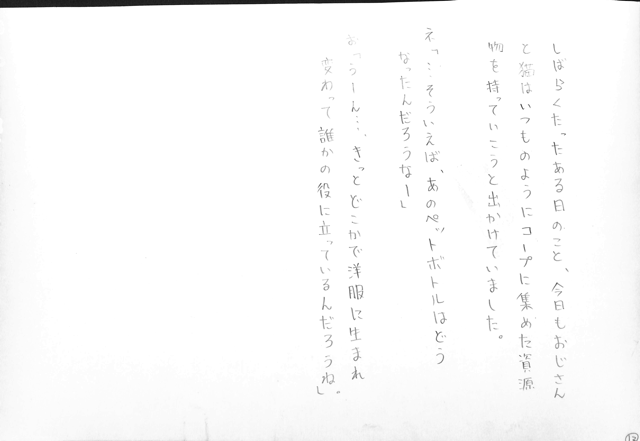 しばらくたったある日のこと、今日もおじさん
と猫はいつものようにコープに集めた資源
物を持っていこうと出かけていました。
ネ「…そういえば、あのペットボトルはどう
なったんだろうなー」
お「うーん…、きっとどこかで洋服に生まれ
変わって誰かの役に立っているんだろうね」。
⑫